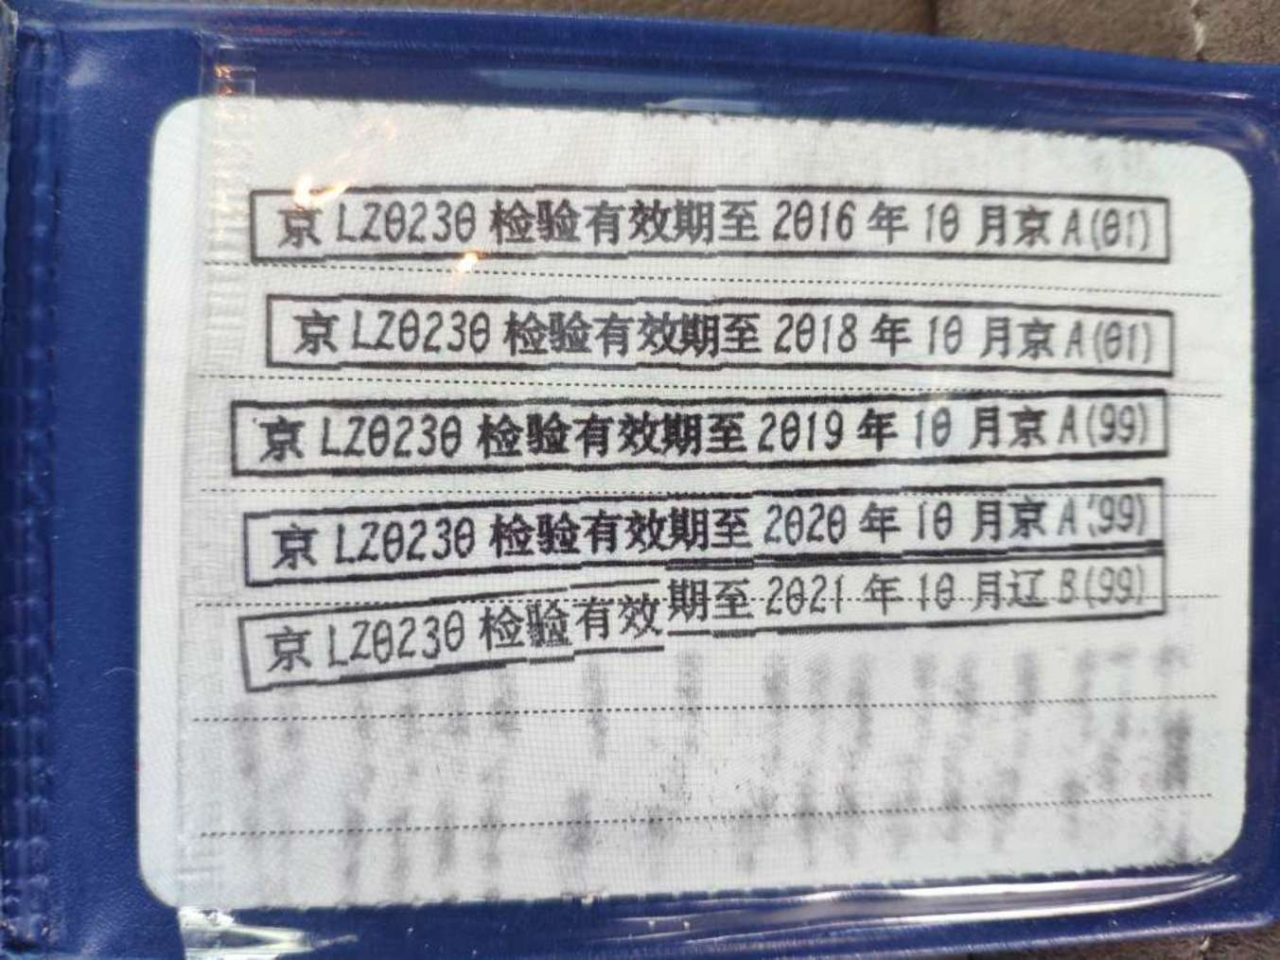 京LZ0230检验有效期至2016年10月京A(01)
京LZ0230检验有效期至2018年10月京A(01)
京LZ0230检验有效期至2019年10月京A(99)
京LZ0230检验有效期至2020年10月京A(99)
京LZ0230检验有效期至2021年10月辽B(99)